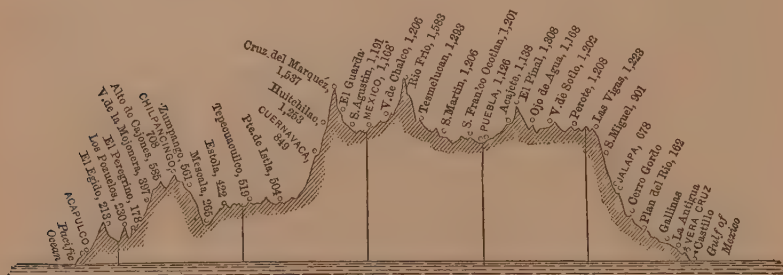 Pacific
Ocean
ACAPULCO
El Egido, 213
Los Pozuelos, 230
El Peregrino, 178
V. de la Mojonera, 397
Alto de Cajones, 585
CHILPANCINGO
708
Zumpango, 561
Mescala, 265
Estola, 422
Tepecuacuilco, 519
Pte. de Istla, 504
CUERNAVACA,
849
Huitchilac,
1,253
Cruz del Marquez,
1,537
El Guarda
S. Agustin, 1,191
MEXICO, 1,168
V. de Chalco, 1,206
Rio Frio, 1,583
Tesmelucan, 1,293
S. Martin, 1,206
S. Fran.co Ocotlan, 1,201
PUEBLA, 1,126
Acajete, 1,138
El Pinal, 1,308
Ojo de Agua, 1,168
V. de Soto, 1,202
Perote, 1,208
Las Vigas, 1,223
S. Miguel, 901
JALAPA, 678
Cerro Gordo
Plan del Rio, 162
Gallinas
La Antigua
VERA CRUZ
Castillo
Gulf of
Mexico